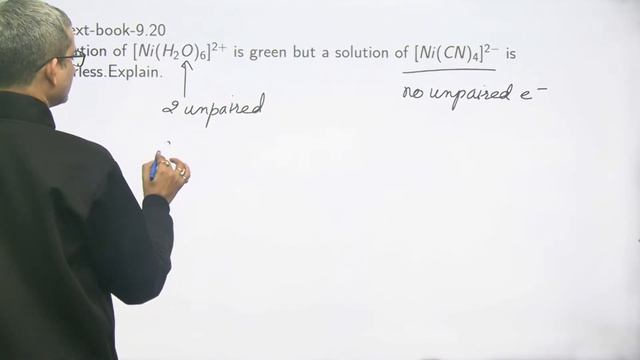 ext-book-9.20
tion of [Ni(H₂O)₆]²⁺ is green but a solution of [Ni(CN)₄]²⁻ is
rless.Explain.
2 unpaired
no unpaired e⁻